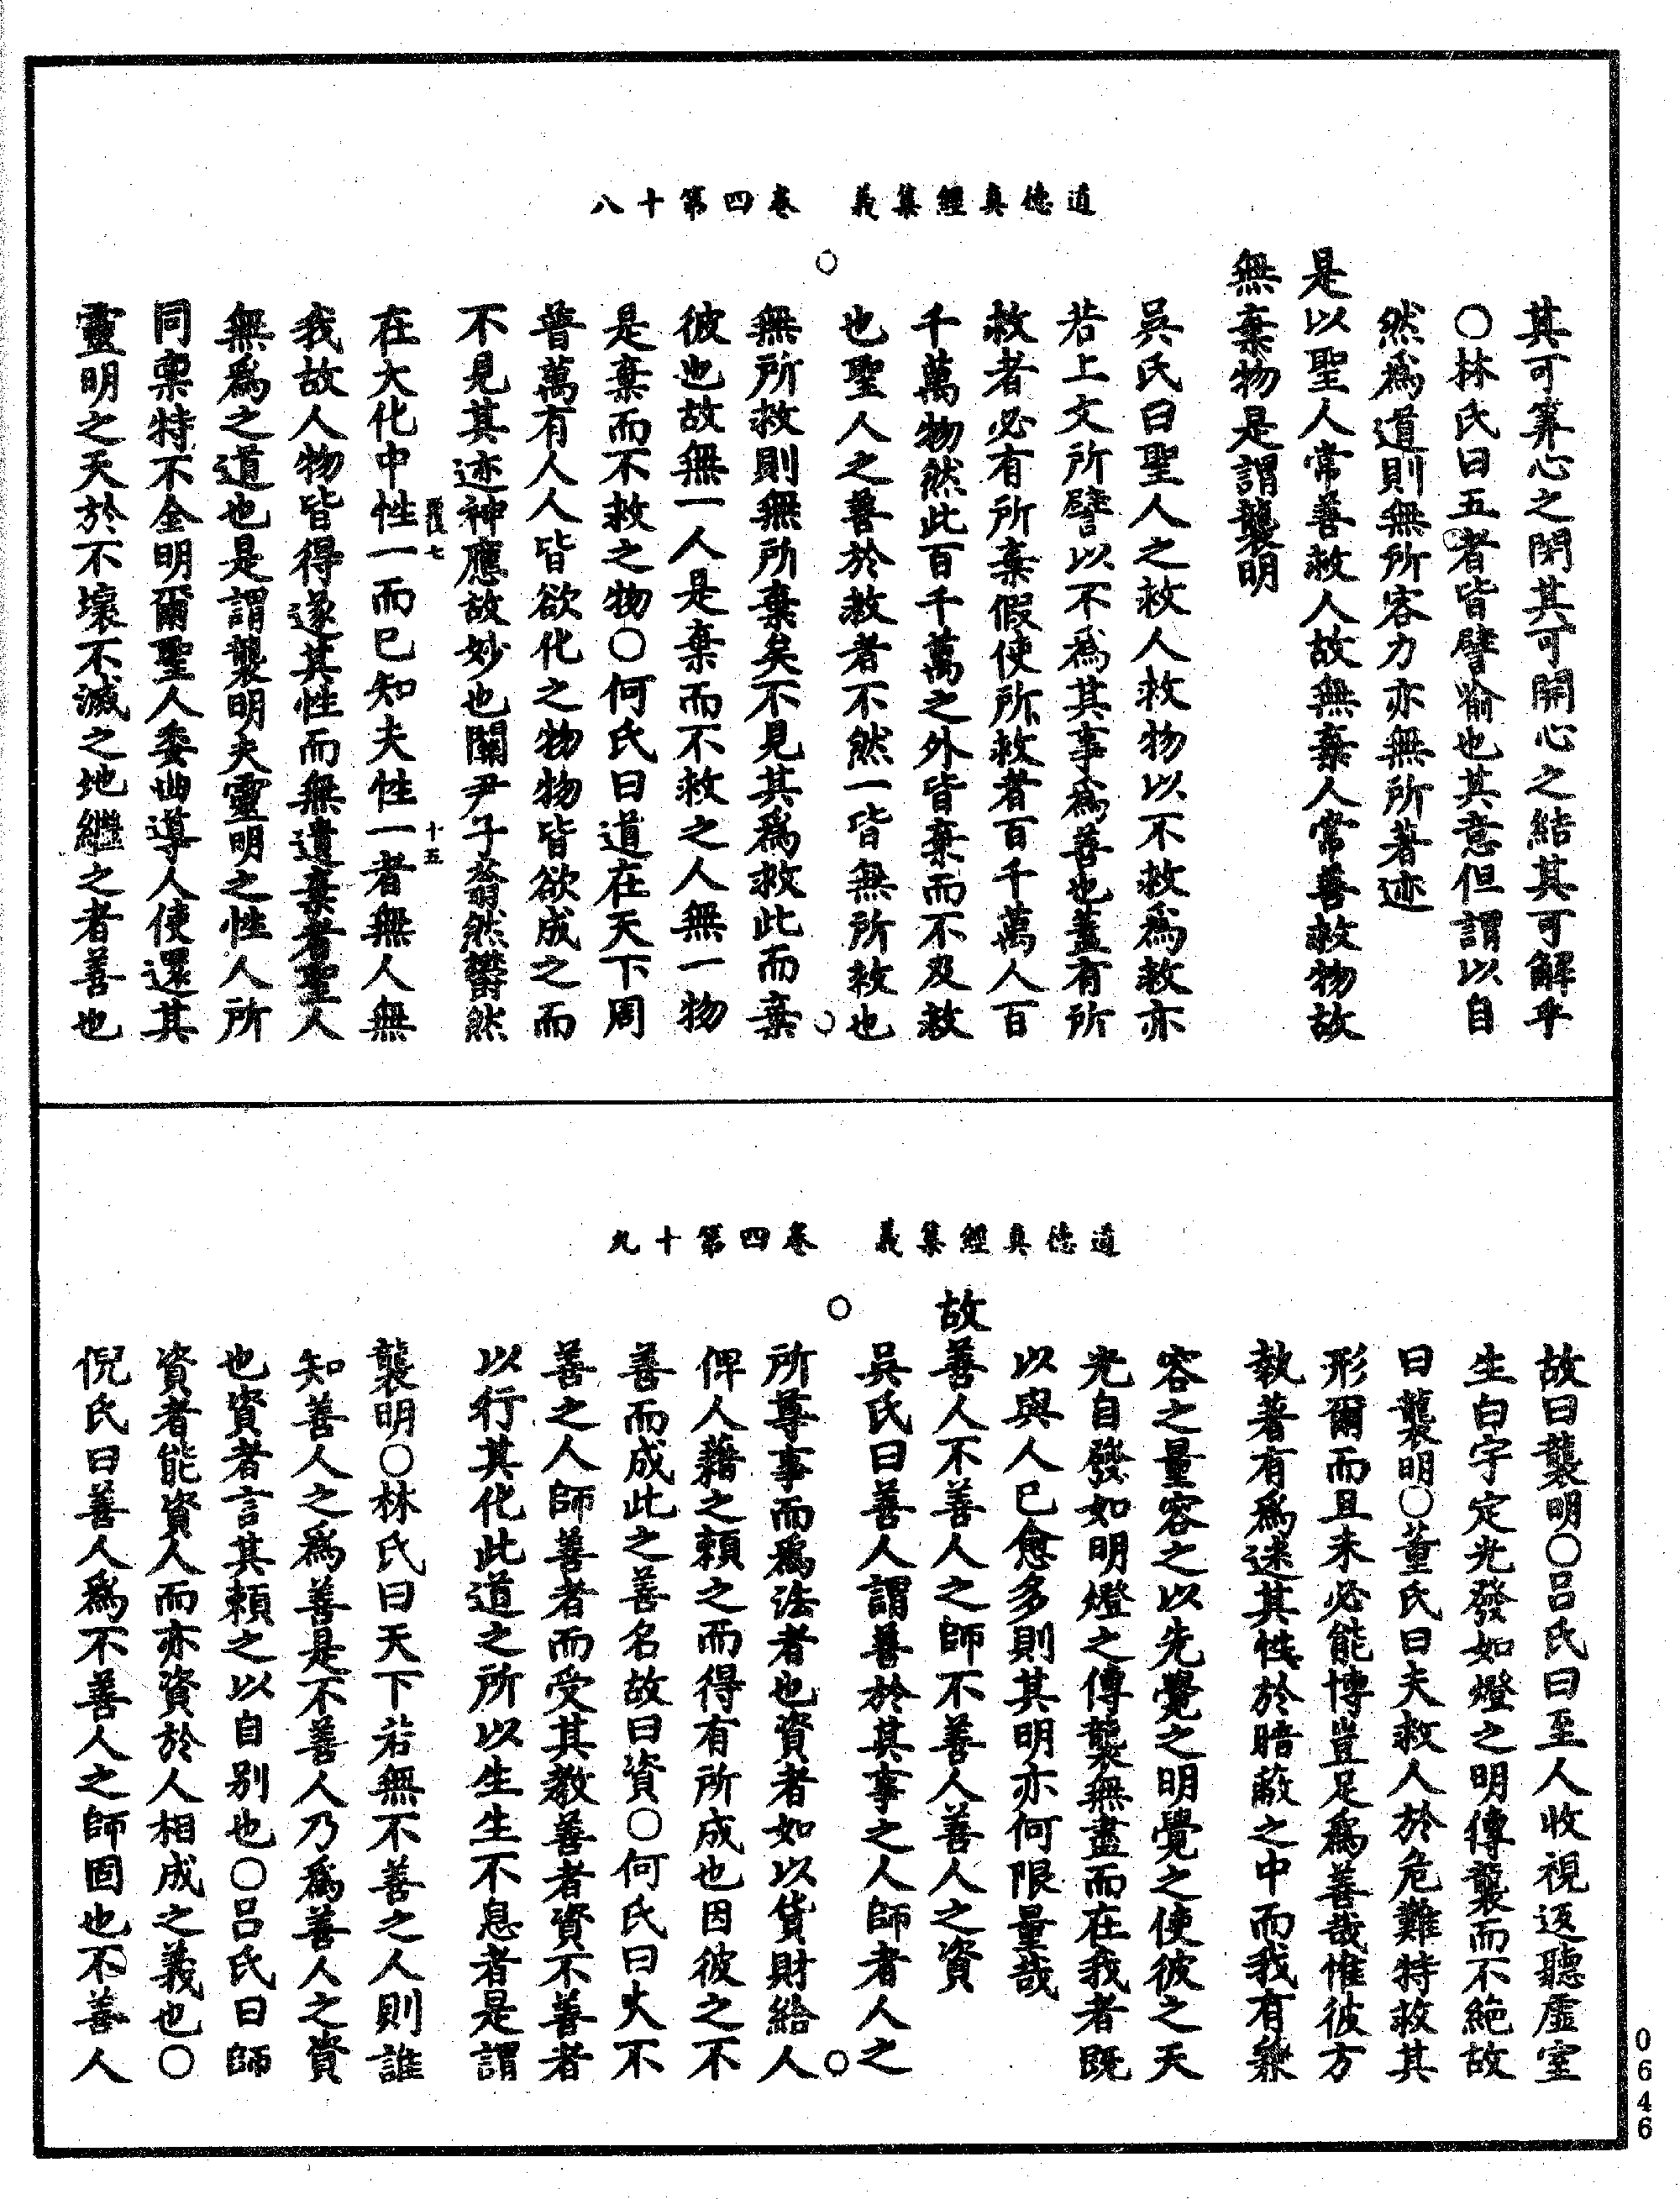 道德真經集義　卷四第十八
其可筭心之閉其可開心之結其可解乎
○林氏曰五者皆譬喻也其意但謂以自
然爲道則無所容力亦無所著迹
是以聖人常善救人故無棄人常善救物故
無棄物是謂襲明
吳氏曰聖人之救人救物以不救爲救亦
若上文所譬以不爲其事爲善也蓋有所
救者必有所棄假使所救者百千萬人百
千萬物然此百千萬之外皆棄而不及救
也聖人之善於救者不然一皆無所救也
無所救則無所棄矣不見其爲救此而棄
彼也故無一人是棄而不救之人無一物
是棄而不救之物○何氏曰道在天下周
普萬有人人皆欲化之物物皆欲成之而
不見其迹神應故妙也關尹子蓊然鬱然
在大化中性一而已知夫性一者無人無
我故人物皆得遂其性而無遺棄者聖人
無爲之道也是謂襲明夫靈明之性人所
同稟特不金明爾聖人委曲導人使還其
靈明之天於不壞不滅之地繼之者善也
七
十五
道德真經集義　卷四第十九
故曰襲明○呂氏曰至人收視返聽虛室
生白宇定光發如燈之明傳襲而不絕故
曰襲明○董氏曰夫救人於危難特救其
形爾而且未必能博豈足爲善哉惟彼方
執著有爲迷其性於暗蔽之中而我有兼
容之量容之以先覺之明覺之使彼之天
光自發如明燈之傳襲無盡而在我者既
以與人已愈多則其明亦何限量哉
故善人不善人之師不善人善人之資
吳氏曰善人謂善於其事之人師者人之
所尊事而爲法者也資者如以貨財給人
俾人藉之賴之而得有所成也因彼之不
善而成此之善名故曰資○何氏曰大不
善之人師善者而受其教善者資不善者
以行其化此道之所以生生不息者是謂
襲明○林氏曰天下若無不善之人則誰
知善人之爲善是不善人乃爲善人之資
也資者言其賴之以自别也○呂氏曰師
資者能資人而亦資於人相成之義也○
倪氏曰善人爲不善人之師固也不善人
0646